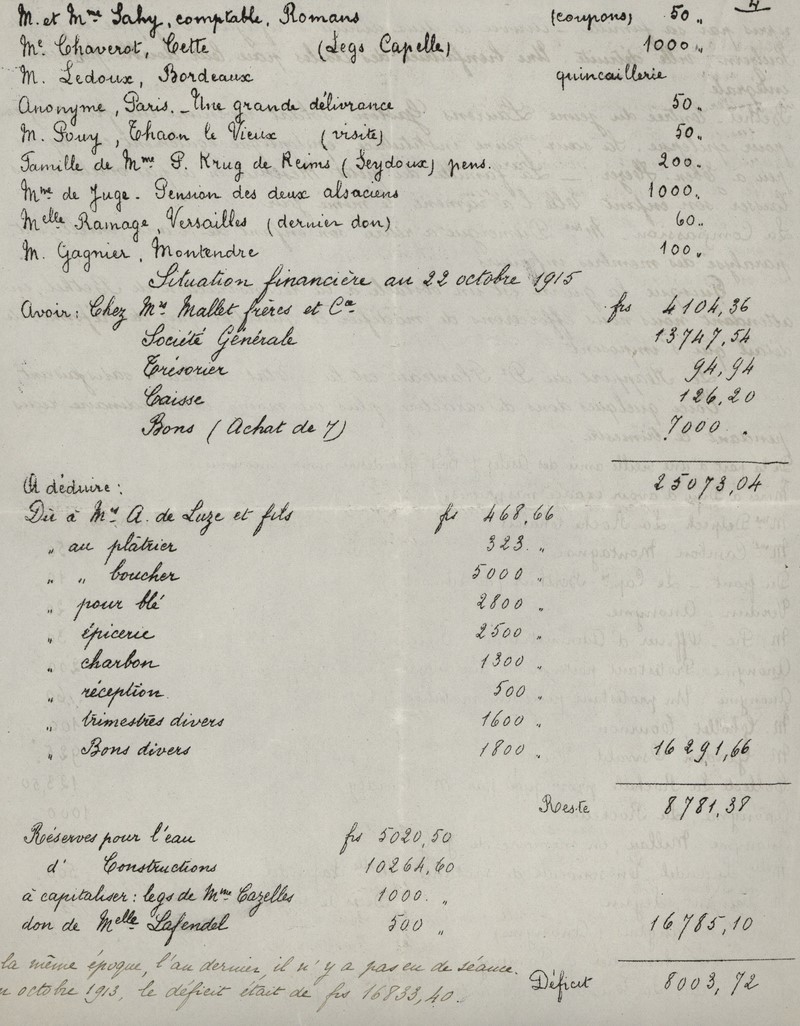 4
M. et Mme Sahy, comptable, Romans (coupons) 50 "
Me Chaverot, Cette (Legs Capelle) 1000 "
M. Ledoux, Bordeaux quincaillerie
Anonyme, Paris. - Une grande délivrance 50 "
M. Pouy, Thaon le Vieux (visite) 50 "
Famille de Mme P. Krug de Reims (Seydoux) pens. 200 "
Mme de Juge - Pension des deux alsaciens 1000 "
Melle Ramage, Versailles (dernier don) 60 "
M. Gagnier, Montendre 100 "
Situation financière au 22 octobre 1915
Avoir: Chez Mrs Mallet frères et Cie frs 4104,36
Société Générale 13747,54
Trésorier 94,94
Caisse 126,20
Bons (Achat de 7) 7000 "
25073,04
A déduire:
Dû à Mrs A. de Luze et fils frs 468,66
" au plâtrier 323 "
" " boucher 5000 "
" pour blé 2800 "
" épicerie 2500 "
" charbon 1300 "
" réception 500 "
" trimestres divers 1600 "
" Bons divers 1800 " 16291,66
Reste 8781,38
Réserves pour l'eau frs 5020,50
d' Constructions 10264,60
à capitaliser: legs de Mme Cazelles 1000 "
don de Melle Lafendel 500 " 16785,10
la même époque, l'an dernier, il n'y a pas eu de séance.
octobre 1913, le déficit était de frs 16833,40.
Déficit 8003,72